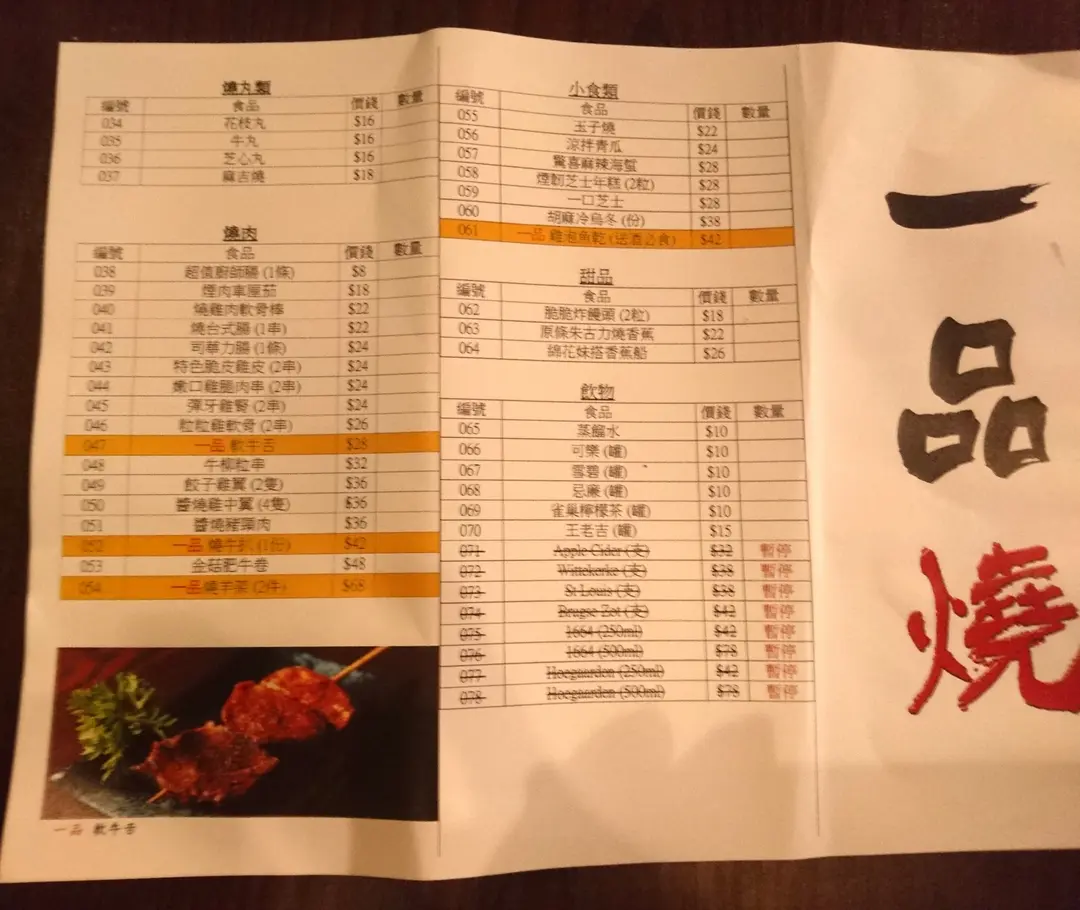 燒丸類
編號 食品 價錢 數量
034 花枝丸 $16
035 牛丸 $16
036 芝心丸 $16
037 麻吉燒 $18
燒肉
編號 食品 價錢 數量
038 超值廚師腸 (1條) $8
039 煙肉車厘茄 $18
040 燒雞肉軟骨棒 $22
041 燒台式腸 (1串) $22
042 司華力腸 (1條) $24
043 特色脆皮雞皮 (2串) $24
044 嫩口雞腿肉串 (2串) $24
045 彈牙雞腎 (2串) $24
046 粒粒雞軟骨 (2串) $26
047 一品 軟牛舌 $28
048 牛柳粒串 $32
049 餃子雞翼 (2隻) $36
050 醬燒雞中翼 (4隻) $36
051 醬燒豬頸肉 $36
052 一品 燒牛扒 (1份) $42
053 金菇肥牛卷 $48
054 一品 燒羊架 (2件) $68
一品 軟牛舌
小食類
編號 食品 價錢 數量
055 玉子燒 $22
056 涼拌青瓜 $24
057 驚喜麻辣海蜇 $28
058 煙韌芝士年糕 (2粒) $28
059 一口芝士 $28
060 胡麻冷烏冬 (份) $38
061 一品 雞泡魚乾 (送酒必食) $42
甜品
編號 食品 價錢 數量
062 脆脆炸饅頭 (2粒) $18
063 原條朱古力燒香蕉 $22
064 綿花妹搭香蕉船 $26
飲物
編號 食品 價錢 數量
065 蒸餾水 $10
066 可樂 (罐) $10
067 雪碧 (罐) $10
068 忌廉 (罐) $10
069 雀巢檸檬茶 (罐) $10
070 王老吉 (罐) $15
071 Apple Cider (支) $32 暫停
072 Wittekerke (支) $38 暫停
073 St Louis (支) $38 暫停
074 Brugse Zot (支) $42 暫停
075 1664 (250ml) $42 暫停
076 1664 (500ml) $78 暫停
077 Hoegaarden (250ml) $42 暫停
078 Hoegaarden (500ml) $78 暫停
一
品
燒